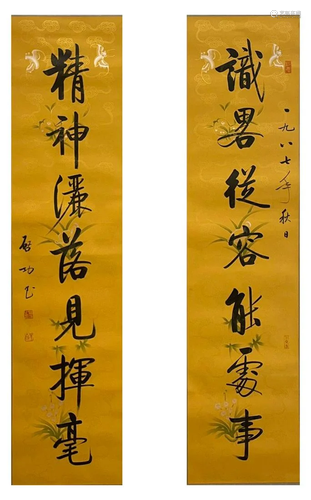 識畧從容能處事
一九八七年秋日
精神灑落見揮毫
啓功書